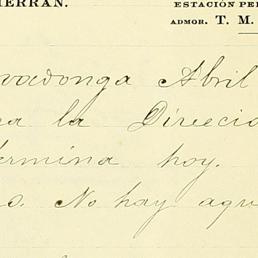 HERRÁN.
ESTACIÓN PE
ADMOR. T. M.
vadonga Abril
a la Direcci
ermina hoy.
s. No hay aqu